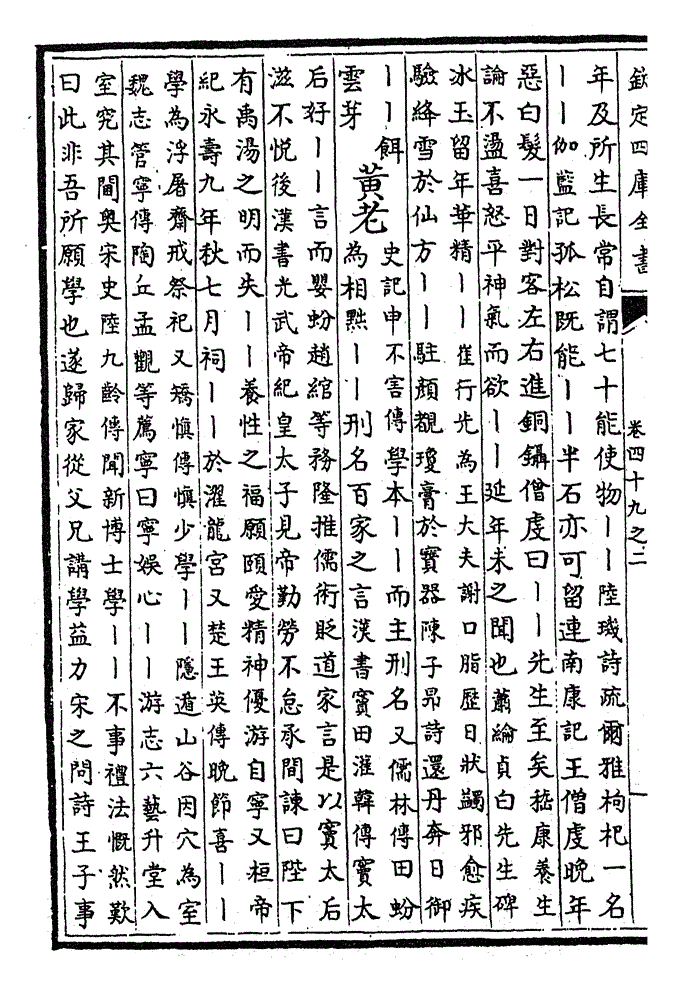 欽定四庫全書
卷四十九之二
年及所生長常自謂七十能使物丨丨陸璣詩疏爾雅枸杞一名
丨丨伽藍記孤松既能丨丨半石亦可留連南康記王僧虔晚年
惡白髮一日對客左右進銅鑷僧虔曰丨丨先生至矣嵇康養生
論不盪喜怒平神氣而欲丨丨延年未之聞也蕭綸貞白先生碑
冰玉留年華精丨丨崔行先為王大夫謝口脂歷日狀蠲邪愈疾
驗絳雪於仙方丨丨駐顏覩瓊膏於寶器陳子昻詩還丹奔日御
丨丨餌
雲芽
黃老
史記申不害傳學本丨丨而主刑名又儒林傳田蚡
為相黜丨丨刑名百家之言漢書竇田灌韓傳竇太
后好丨丨言而嬰蚡趙綰等務隆推儒術貶道家言是以竇太后
滋不悅後漢書光武帝紀皇太子見帝勤勞不怠承間諫曰陛下
有禹湯之明而失丨丨養性之福願頤愛精神優游自寧又桓帝
紀永壽九年秋七月祠丨丨於濯龍宮又楚王英傳晚節喜丨丨
學為浮屠齋戒祭祀又矯慎傳慎少學丨丨隱遁山谷因穴為室
魏志管寧傳陶丘孟觀等薦寧曰寧娛心丨丨游志六藝升堂入
室究其閫奧宋史陸九齡傳聞新博士學丨丨不事禮法慨然歎
曰此非吾所願學也遂歸家從父兄講學益力宋之問詩王子事